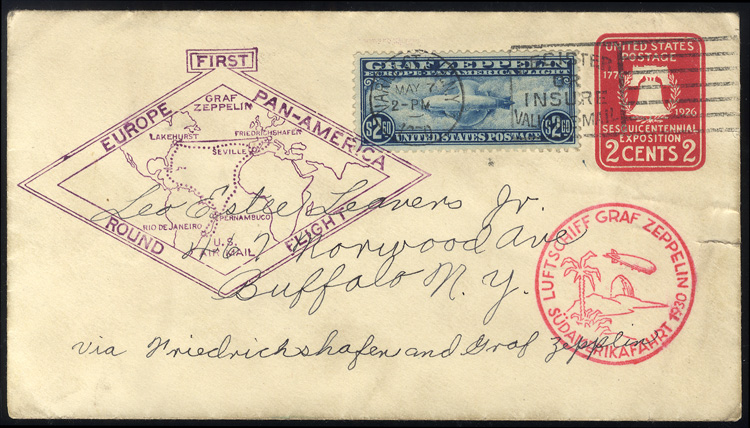 FIRST
EUROPE PAN-AMERICA
ROUND FLIGHT
GRAF
ZEPPELIN
LAKEHURST
FRIEDRICHSHAFEN
SEVILLE
PERNAMBUCO
RIO DE JANEIRO
U.S.
AIR MAIL
GRAF ZEPPELIN
EUROPE PAN-AMERICA FLIGHT
$2.60 $2.60
UNITED STATES POSTAGE
MAY
2-PM
OR
INSURE
MAIL
UNITED STATES
POSTAGE
1926
SESQUICENTENNIAL
EXPOSITION
2 CENTS 2
Leo Estee Leavers Jr.
467 Norwood Ave
Buffalo N.Y.
via Friedrichshafen and Graf Zeppelin
LUFTSCHIFF GRAF ZEPPELIN
SÜDAMERIKAFAHRT 1930